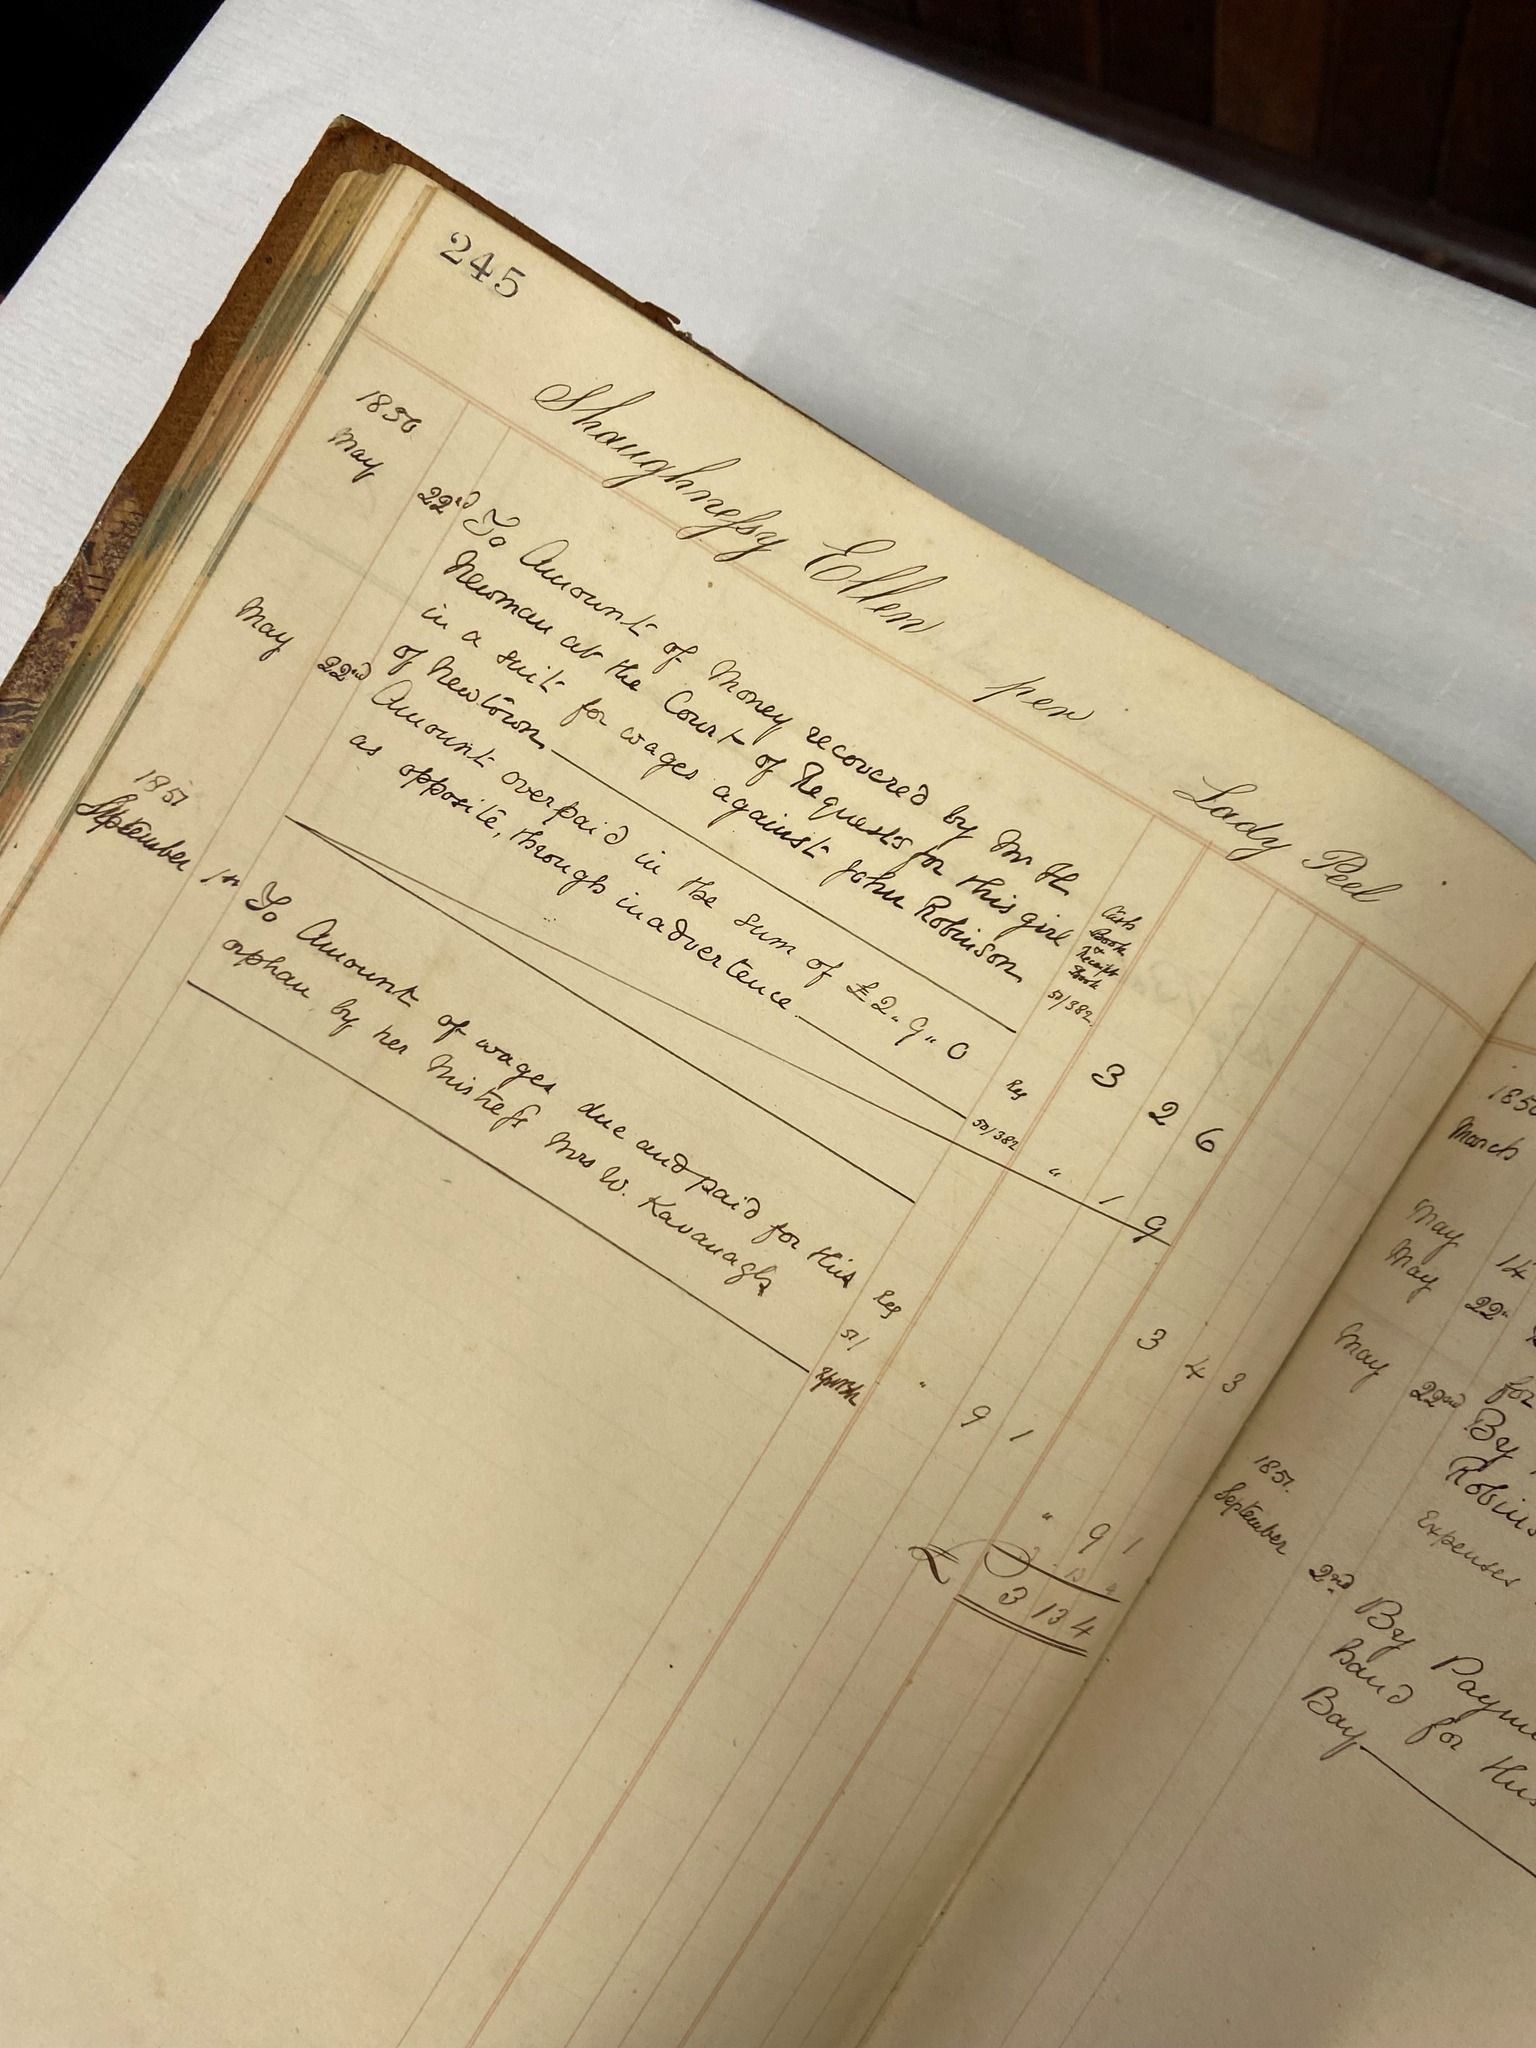 245
Shaughnessy Ellen per Lady Peel
1850
May 22nd To Amount of Money recovered by Mr H
Newman at the Court of Requests for this girl
in a suit for wages against John Robinson
of Newtown
Cash
Book
&
Receipt
Book
50/382
3 2 6
May 22nd Amount overpaid in the sum of £2"9"0
as opposite, through inadvertence
Reg
50/382
" 1 9
3 4 3
1851
September 1st To Amount of wages due and paid for this
orphan by her Mistress Mrs W. Kavanagh
Reg
51/
" 9 1
" 9 1
£ 3 13 4
1850
March
May 14
May 22nd
for
May 22nd By
Robins
Expenses
1851.
September 2nd By Payme
hand for this
Bay